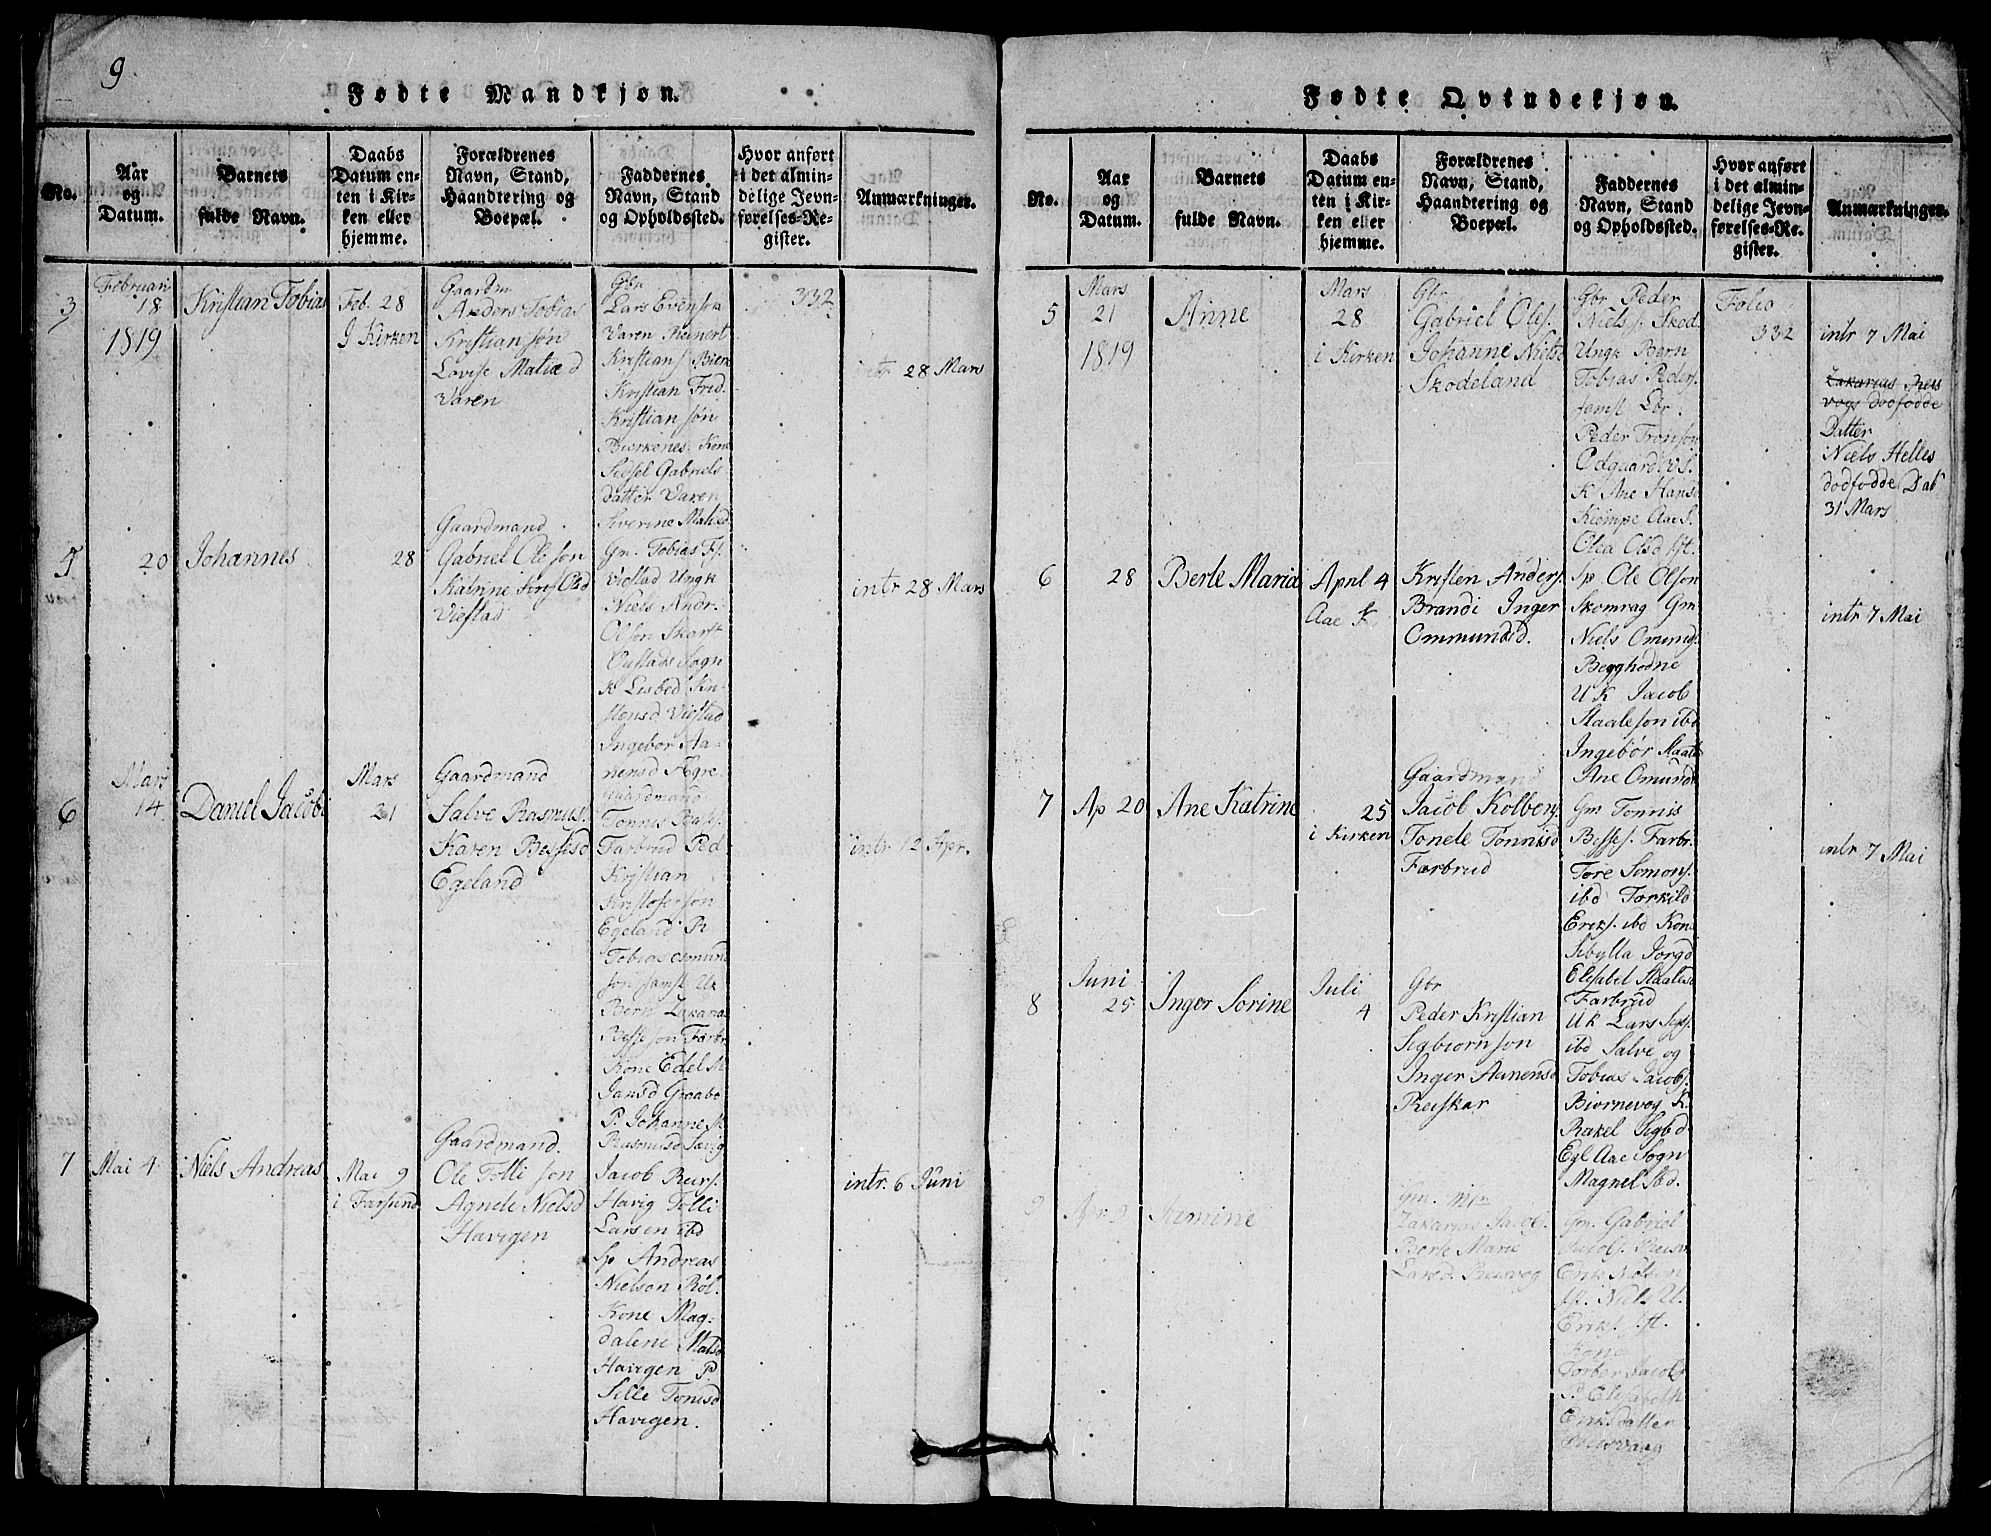 9
Fødte Mandkjøn.
No.
Aar
og
Datum.
Barnets
fulde Navn.
Daabs
Datum en-
ten i Kir-
ken eller
hjemme.
Forældrenes
Navn, Stand,
Haandtering og
Boepæl.
Faddernes
Navn, Stand
og Opholdssted.
Hvor anført
i det almin-
delige Jevn-
førelses-Re-
gister.
Anmærkninger.
3
Februari
18
1819
Kristian Tobias
Feb. 28
I Kirken
Gaardm
Anders Tobias
Kristiansøn
Lovise Matiæ d
Varen
Gbr
Lars Evensøn
Varen Reinert
Kristians. Bierk
Kristian Frid.
Kristiansøn
Bierkenes. Kone
Sidsel Gabriels
datter Varen
Siverine Matisd
332
intr 28 Mars
20
Johannes
28
Gaardmand
Gabriel Oleson
Katrine Kris Olsd
Viestad
Gm. Tobias
Viestad Ungk
Niels Andr.
Olsøn
Sogn
K Lisbed Kri-
stensd Viestad
Ingebor Aa-
nensd
intr 28 Mars
6
Mars
14
Daniel Jacob
Mars
21
Gaardmand
Salve Rasmus.
Karen Bessesd
Egeland
Gaardmand
Tonnis
Farbrud Ped
Kristian
Kristoferson
Egeland P.
Tobias Osmund
son samst Uk
Bern Zakarias
Besseson Farbr
Kone Edel M
Jansd Graabe
P. Johanne M
Rasmusd
intr 12 Apr.
7
Mai 4
Niels Andreas
Mai 9
i Farsund
Gaardmand.
Ole Tolli son
Agnete Nielsd
Havigen
Jacob
Havig Tolli
Larsen ibd
Sp Andreas
Nielson
Kone Mag-
dalene Matsd
Havigen P.
Sille Tonisd
Havigen.
intr. 6 Juni
Fødte Qvindekjøn.
No.
Aar
og
Datum.
Barnets
fulde Navn.
Daabs
Datum en-
ten i Kir-
ken eller
hjemme.
Forældrenes
Navn, Stand,
Haandtering og
Boepæl.
Faddernes
Navn, Stand
og Opholdssted.
Hvor anført
i det almin-
delige Jevn-
førelses-Re-
gister.
Anmærkninger.
5
Mars
21
1819
Anne
Mars
28
i Kirken
Gbr
Gabriel Oles.
Johanne Nielsd
Skodeland
Gbr Peder
Niels. Skod.
Ungk Bern
Tobias Peders.
samst Lbr.
Peder Tronson
Odgaard V S.
K Ane Hansd
Kiempe Aae S.
Olea Olsd
Folio
332
intr 7 Mai
Zakarias Reis
vogs dodfodde
Datter
Niels Helles
dodfodde Dat
31 Mars
6
28
Berte Maria
April 4
Aae K
Kristen Anders.
Brandi Inger
Ommundsd.
Sp Ole Olson
Skomrag Gm
Niels Omund.
Begghodne
U K Jacob
Staaleson ibd
Ingebør Staalsd
Ane Omunds
intr 7 Mai
7
Ap 20
Ane Katrine
25
i Kirken
Gaardmand
Jacob Kolbens
Tonele Tonnisd
Farbrud
Gm Tonnis
Besses. Farbr.
Tore Somons.
ibd Torkild
Eriks. ibd Kone
Sibylla Jorgd
Elisabet Staalesd
Farbrud
intr 7 Mai
8
Juni
25
Inger Sorine
Juli
4
Gbr
Peder Kristian
Sigbiornson
Inger Aanensd
Reiskar
U K Lars
ibd Salve og
Tobias Jacobs.
Biornevog K.
Rakel Sigbd
Egl Aae Sogn
Magnel Sbd.
9
Apr 9
Gm.
Zakarias Jacobs.
Berte Marie
Larsd. Reisvog
Gm. Gabriel
Jacobs.
Erik Nilsen
Niels
Eriks.
Kone
Torber Jacobs
P. Elisabeth
Eriksdatter